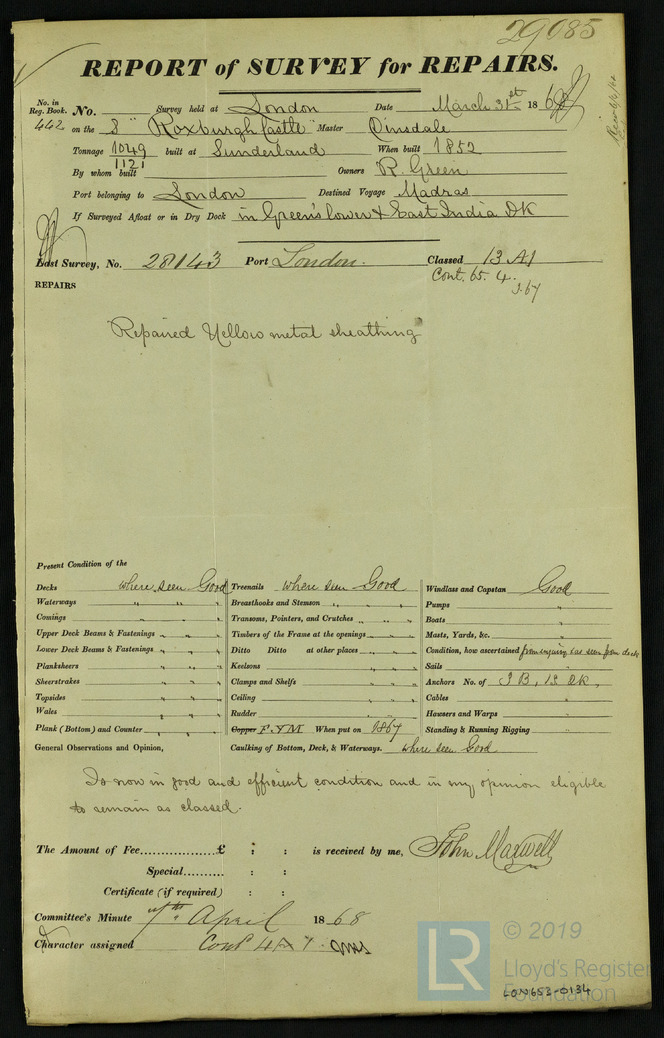 29085
REPORT of SURVEY for REPAIRS.
No. in Reg. Book. No. Survey held at London Date March 31st 1868
442 on the S "Roxburgh Castle" Master Dinsdale
Tonnage 1049 built at Sunderland When built 1852
1121
By whom built Owners R. Green
Port belonging to London Destined Voyage Madras
If Surveyed Afloat or in Dry Dock in Green's lower & East India Dk
Last Survey, No. 28143 Port London. Classed 13 A1
Cont. 65. 4.
3.67
REPAIRS
Repaired Yellow metal sheathing
Present Condition of the
Decks where seen Good Treenails where seen Good Windlass and Capstan Good
Waterways " " " Breasthooks and Stemson " " " Pumps "
Comings " " " Transoms, Pointers, and Crutches " " " Boats "
Upper Deck Beams & Fastenings " " " Timbers of the Frame at the openings " " " Masts, Yards, &c. "
Lower Deck Beams & Fastenings " " " Ditto Ditto at other places " " " Condition, how ascertained from inquiry & as seen from deck
Planksheers " " " Keelsons " " " Sails "
Sheerstrakes " " " Clamps and Shelfs " " " Anchors No. of 3 B, 1S DK,
Topsides " " " Ceiling " " " Cables "
Wales " " " Rudder " " " Hawsers and Warps "
Plank (Bottom) and Counter " " " Copper F. Y M When put on 1867 Standing & Running Rigging "
General Observations and Opinion, Caulking of Bottom, Deck, & Waterways. where seen Good
Is now in good and efficient condition and in my opinion eligible
to remain as classed.
The Amount of Fee................£ : : is received by me, John Maxwell
Special.......... : :
Certificate (if required) : :
Committee's Minute 7th April 1868
Character assigned Cont
© 2019
LR
Lloyd's Register
Foundation
LON653-0134